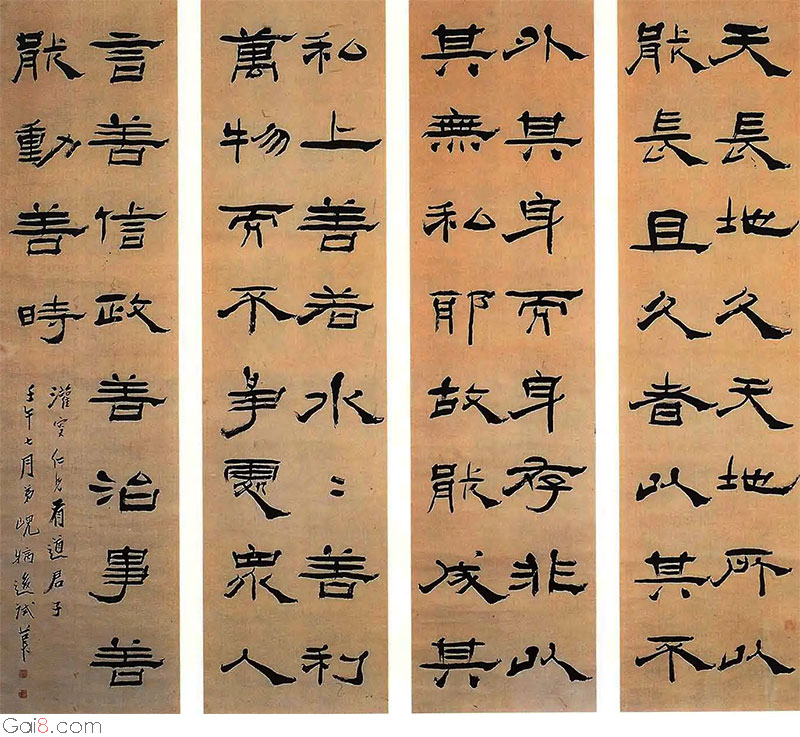 天長地久天地所以
能長且久者以其不
外其身而身存非以
其無私耶故能成其
私上善若水〻善利
萬物而不爭處眾人
言善信政善治事善
能動善時
仁兄有道君子
壬午七月弟峴病後試筆
Gai8.com